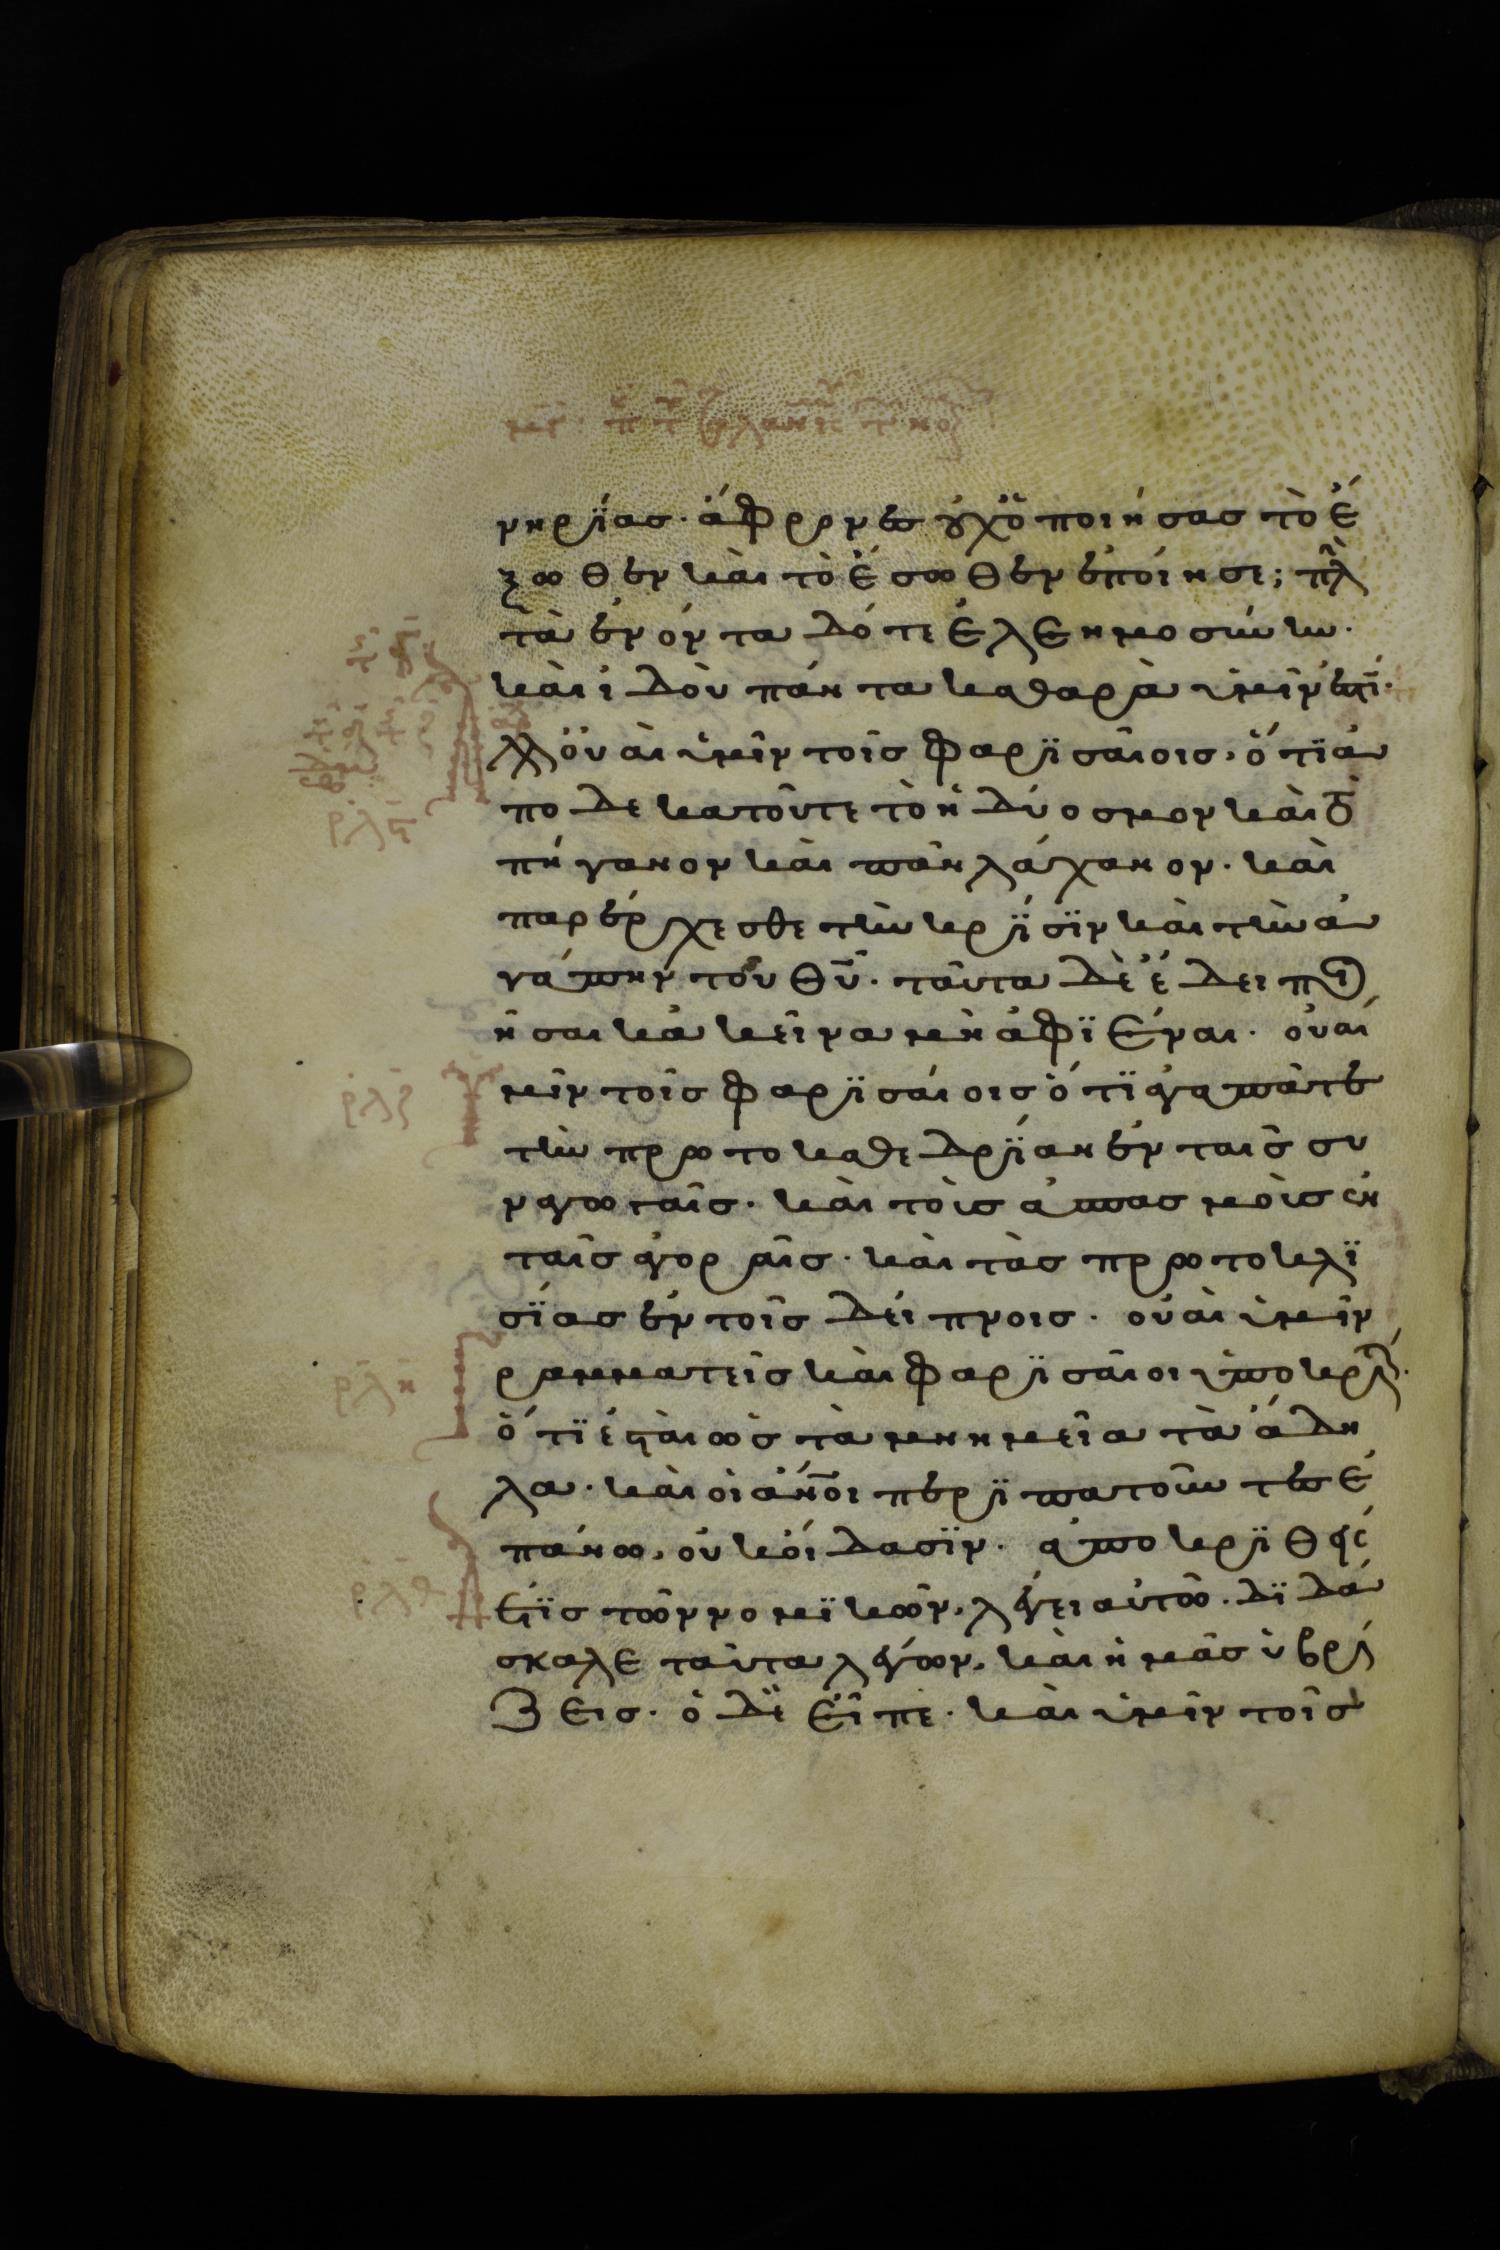 νηρίασ· ἄφρονεσ οὐχ ὁ ποιήσασ τὸ ἔ
ξωθεν καὶ τὸ ἔσωθεν ἐποίησε; πλ
τὰ ἐνόντα δότε ἐλεημοσύνην·
καὶ ἰδοὺ πάντα καθαρὰ ὑμῖν ἐστί·
λλ οὐαὶ ὑμῖν τοῖσ φαρισαίοισ, ὅτι ἀ
ποδεκατοῦτε τὸ ἡδύοσμον καὶ τὸ
πήγανον καὶ πᾶν λάχανον· καὶ
παρέρχεσθε τὴν κρίσιν καὶ τὴν ἀ
γάπην τοῦ θυ· ταῦτα δὲ ἔδει ποι
ῆσαι κἀκεῖνα μὴ ἀφιέναι· οὐαὶ
μῖν τοῖσ φαρισαίοισ ὅτι ἀγαπᾶτε
τὴν πρωτοκαθεδρίαν ἐν ταῖσ συ
ναγωγαῖσ· καὶ τοὺσ ἀσπασμοὺσ ἐν
ταῖσ ἀγοραῖσ· καὶ τὰσ πρωτοκλι
σίασ ἐν τοῖσ δείπνοισ· οὐαὶ ὑμῖν
ραμματεῖσ καὶ φαρισαῖοι ὑποκρι
ὅτι ἐστὲ ὡσ τὰ μνημεῖα τὰ ἄδη
λα· καὶ οἱ ἄνοι περιπατοῦντεσ ἐ
πάνω, οὐκ οἴδασιν· ἀποκριθείσ
εἷσ τῶν νομικῶν, λέγει αὐτῶ· διδά
σκαλε ταῦτα λέγων, καὶ ἡμᾶσ ὑβρί
ζεισ· ὁ δὲ εἶπε· καὶ ὑμῖν τοῖσ
ρλϛ
ρλζ
ρλη
ρλθ